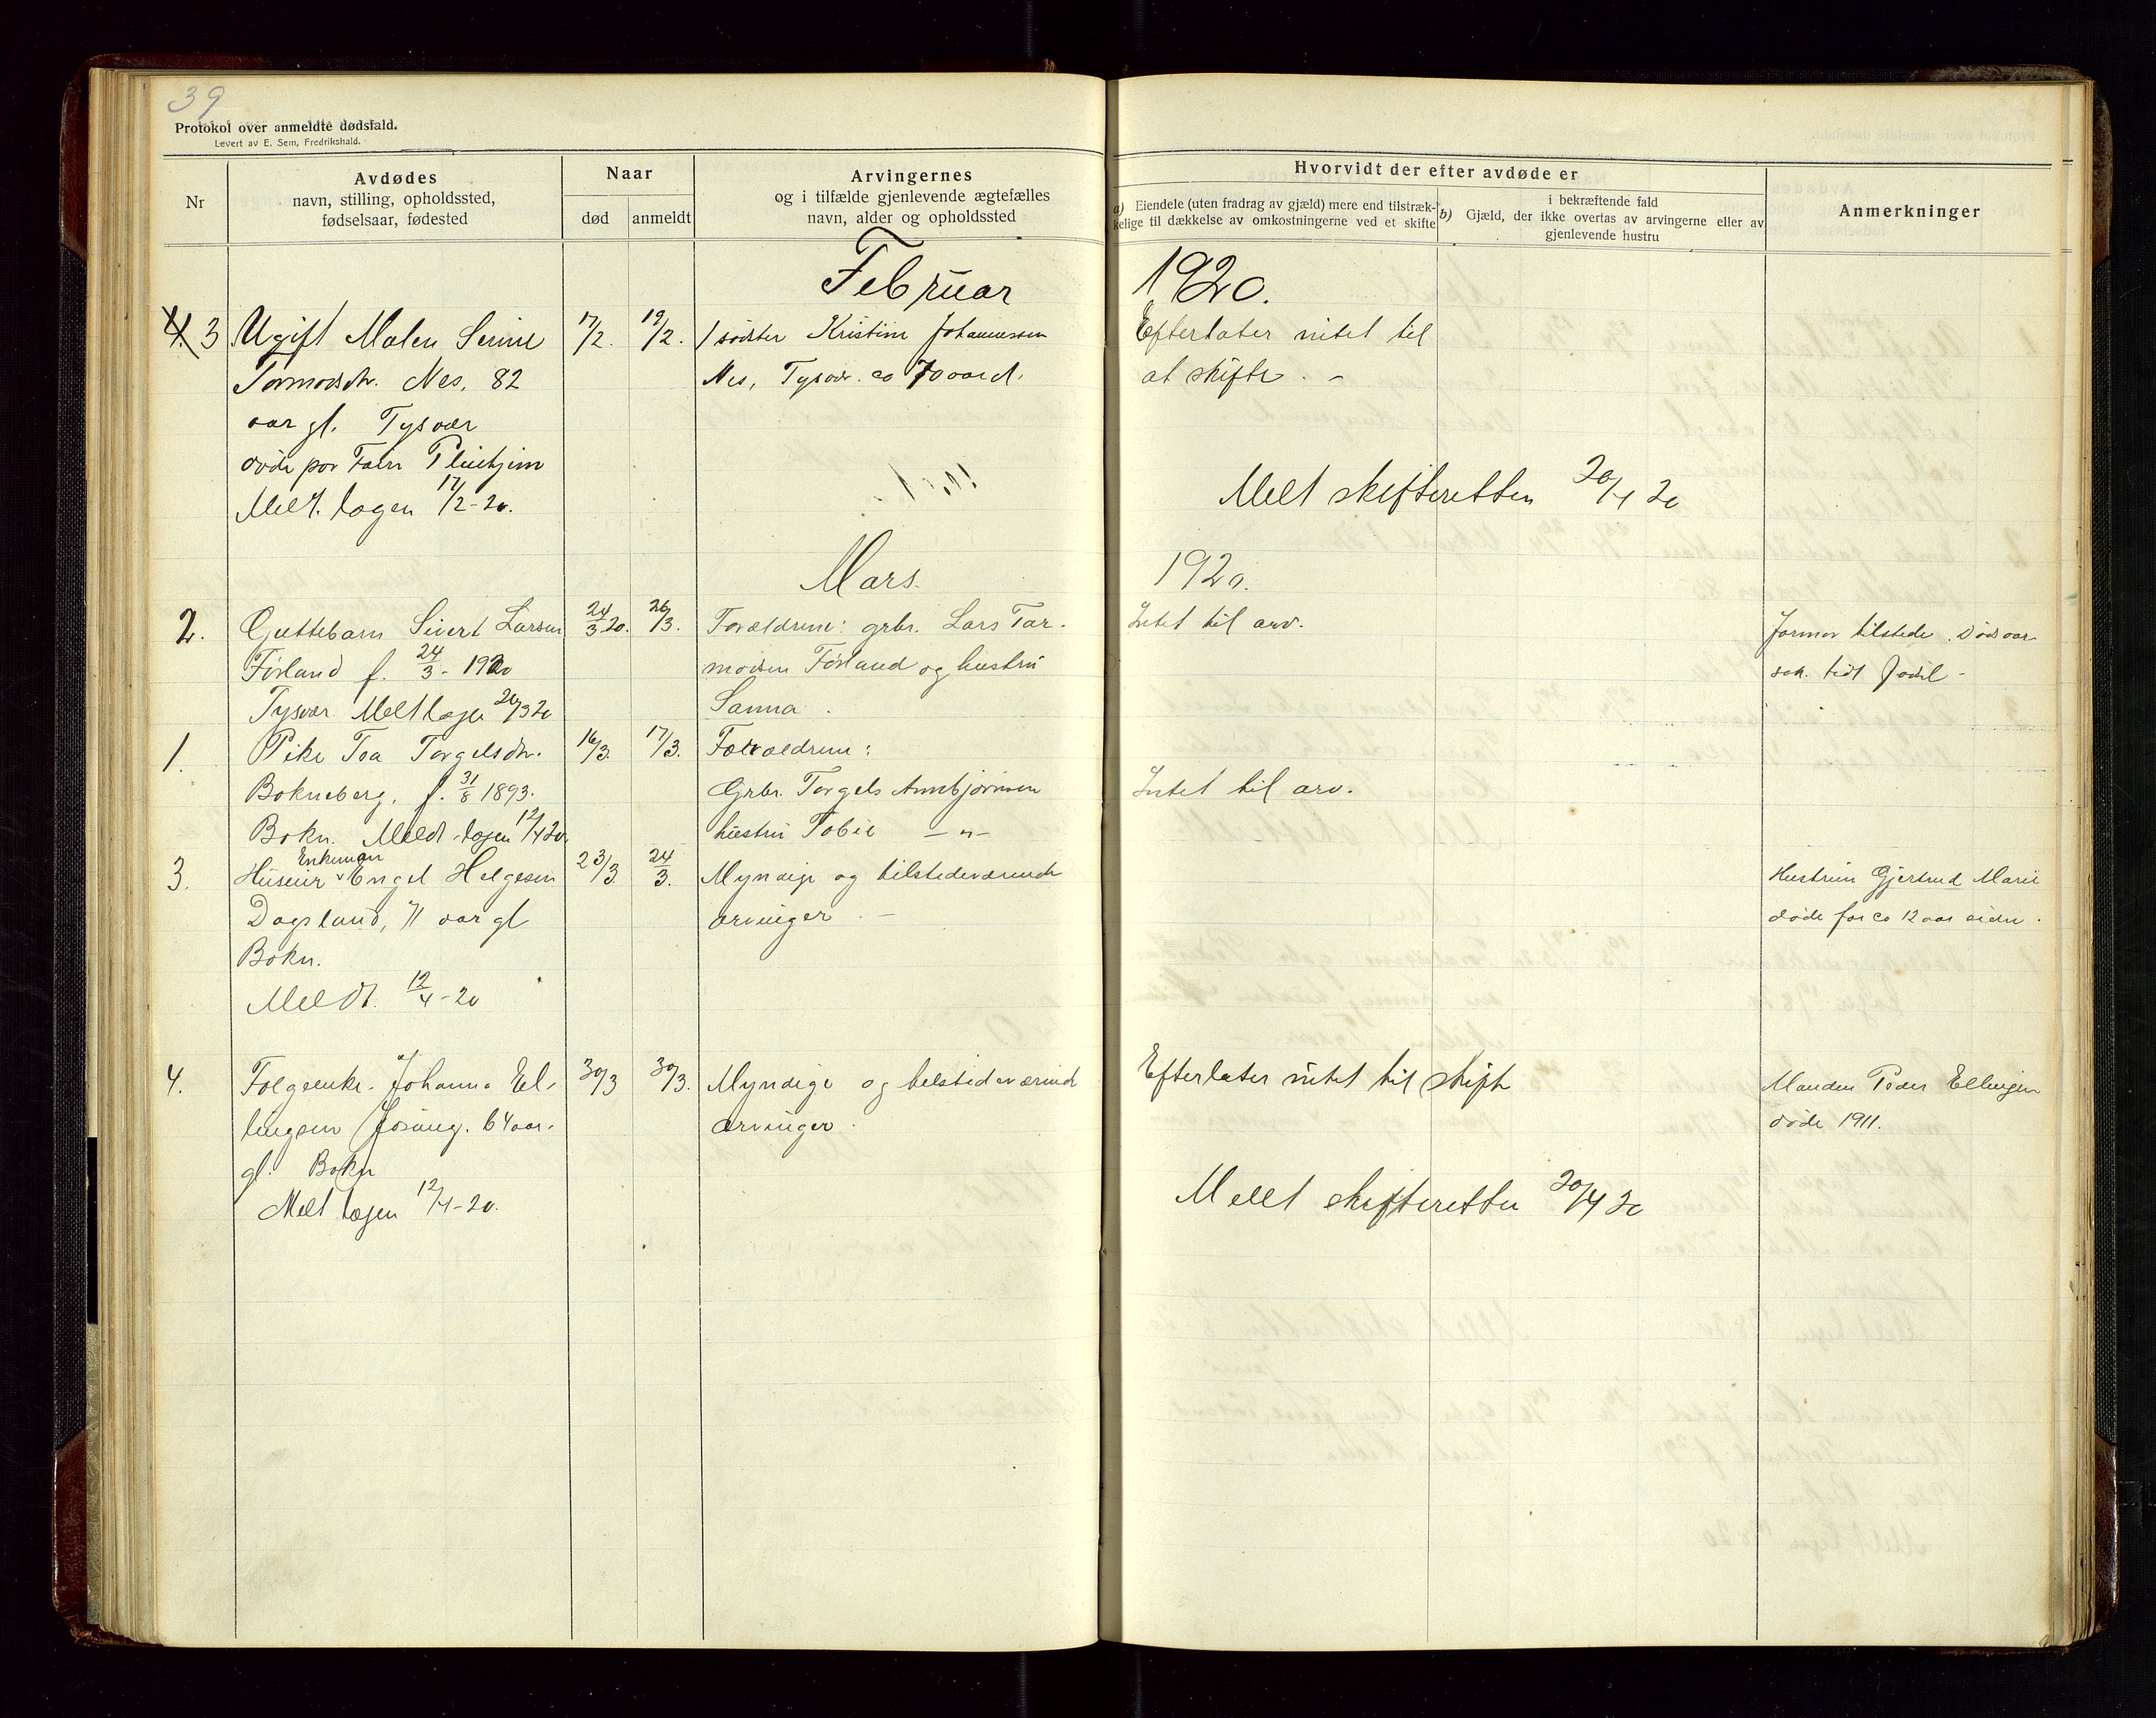 39
Protokol over anmeldte dødsfald.
Levert av E. Sem, Fredrikshald.
Nr
Avdødes
navn, stilling, opholdssted,
fødselsaar, fødested
Naar
død
anmeldt
Arvingernes
og i tilfælde gjenlevende ægtefælles
navn, alder og opholdssted
Hvorvidt der efter avdøde er
a) Eiendele (uten fradrag av gjæld) mere end tilstræk-
kelige til dækkelse av omkostningerne ved et skifte
i bekræftende fald
b) Gjæld, der ikke overtas av arvingerne eller av
gjenlevende hustru
Anmerkninger
Februar 1920.
4. 3 Ugift Malen Serine
Tormodsdtr. Nes, 82
aar gl. Tysvær
døde paa
Melt. lagen 17/2-20.
17/2. 19/2.
1 søster Kristine Johannessen
Nes, Tysvær. ca 70 aar
Efterlater intet til
at skifte. -
Melt skifteretten 20/4 20
Mars. 1920.
2. Guttebarn Sivert Larsen
Førland f. 24/3 - 1920
Tysvær Melt lagen 20
24/3 20. 26/3.
Forældrene: grbr. Lars Tor-
modsen Førland og hustru
Sanna.
Intet til arv.
Farmor tilstede. Dødsaar-
sak. -
1. Pike Toa Torgelsdtr.
Bokneberg. f. 31/8 1893.
Bokn. Meldt lagen 12/4 20.
16/3. 17/3.
Forældrene:
Grbr. Torgels
hustru Tobie - " -
Intet til arv.
3. Huseier Enkemann Engel Helgesen
Dagsland, 71 aar gl
Bokn.
Meldt. 12/4-20
23/3. 24/3.
Myndige og tilstedeværende
arvinger. -
Hustruen Gjertrud Marie
døde for ca 12 aar siden.
4. Johanna El-
lingsen 64 aar.
gl. Bokn
Melt lagen 12/4-20.
30/3 30/3.
Myndige og tilstedeværende
arvinger.
Efterlater intet til skifte
Manden Peder Ellingsen
døde 1911.
Meldt skifteretten 20/4 20